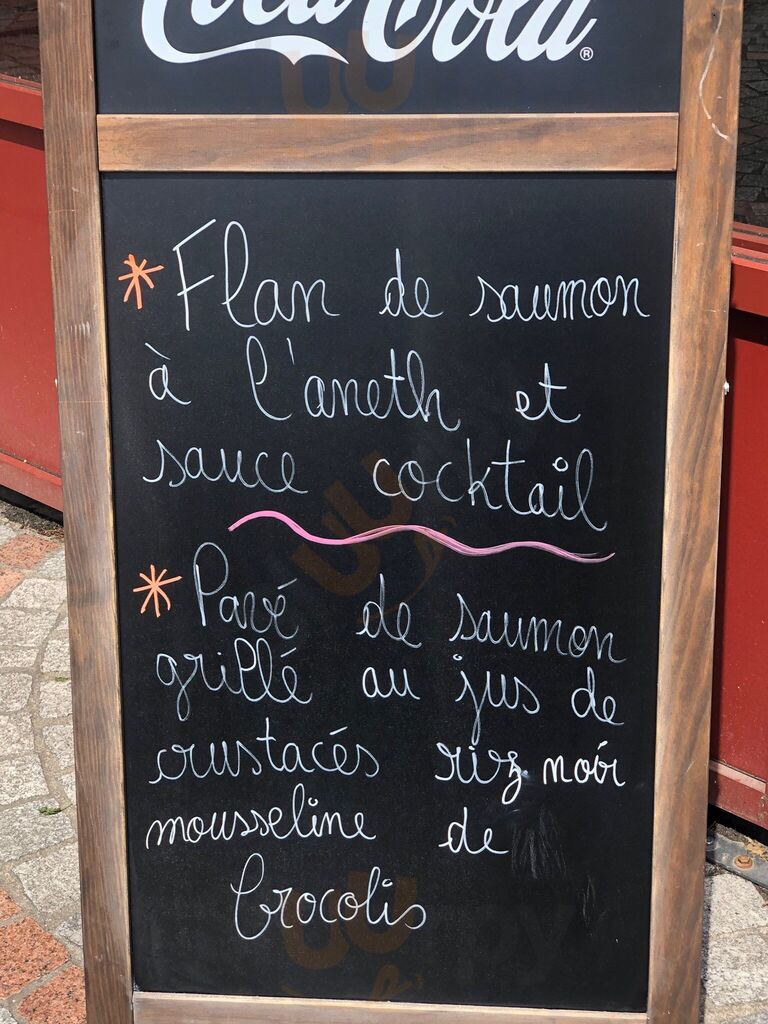 Coca-Cola®
* Flan de saumon
à l'aneth et
sauce cocktail
* Pavé de saumon
grillé au jus de
crustacés riz noir
mousseline de
brocolis